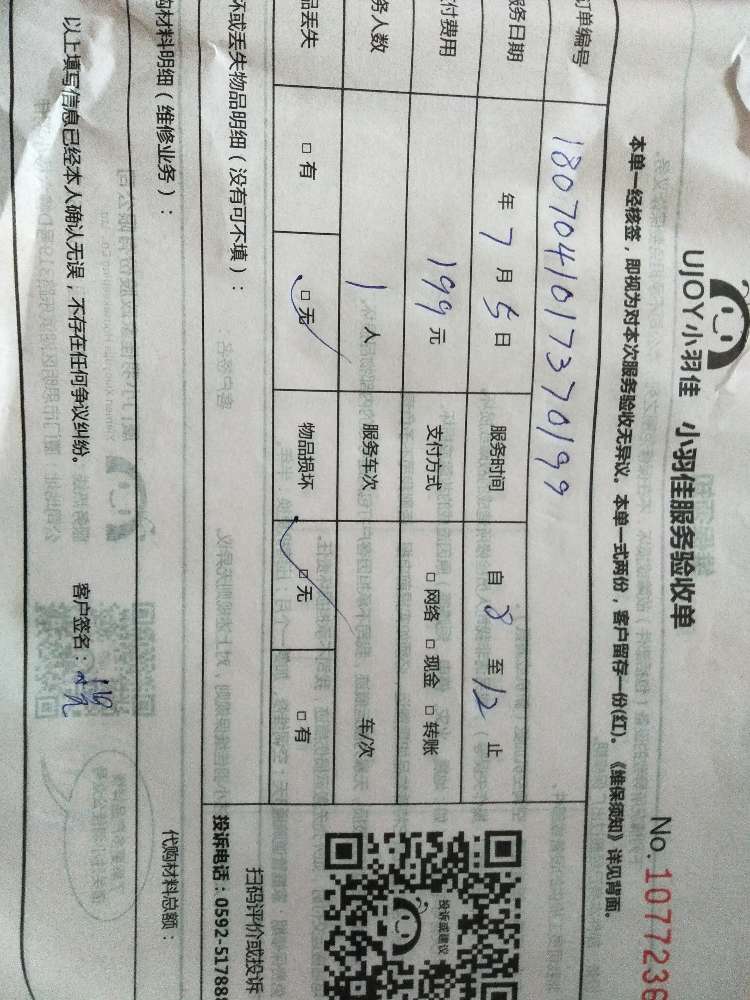 UJOY小羽佳 小羽佳服务验收单
No. 1077236
本单一经核签，即视为对本次服务验收无异议。本单一式两份，客户留存一份(红)。《维保须知》详见背面。
订单编号 1807041017370199
服务日期 年 7 月 5 日 服务时间 自 8 至 12 止
付费用 199 元 支付方式 □ 网络 □ 现金 □ 转账
务人数 1 人 服务车次 车/次
品丢失 □ 有 □ 无 物品损坏 □ 无 □ 有
坏或丢失物品明细（没有可不填）：
购材料明细（维修业务）： 代购材料总额：
以上填写信息已经本人确认无误，不存在任何争议纠纷。 客户签名：
投诉或建议
扫码评价或投诉
投诉电话：0592-517888